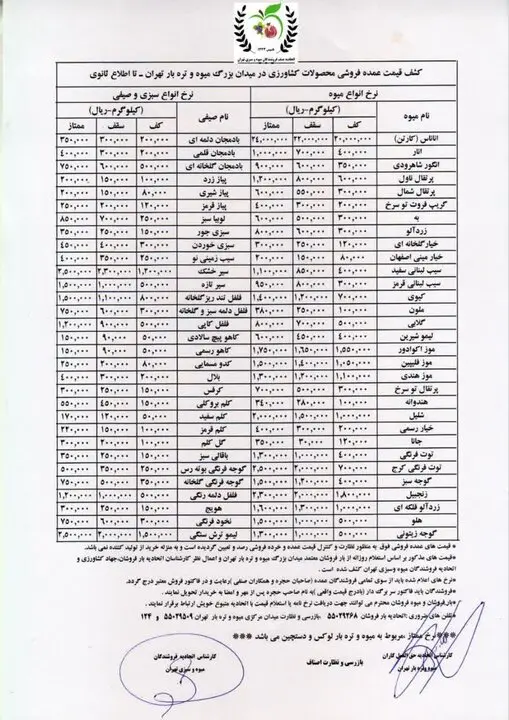 کشف قیمت عمده فروشی محصولات کشاورزی در میدان بزرگ میوه و تره بار تهران ـ تا اطلاع ثانوی
نرخ انواع میوه نرخ انواع سبزی و صیفی
(کیلوگرم-ریال) (کیلوگرم-ریال)
نام میوه کف سقف ممتاز نام صیفی کف سقف ممتاز
آناناس (کارتن) ۲۰,۰۰۰,۰۰۰ ۲۲,۰۰۰,۰۰۰ ۲۴,۰۰۰,۰۰۰ بادمجان دلمه ای ۲۰۰,۰۰۰ ۳۰۰,۰۰۰ ۳۵۰,۰۰۰
انار ۴۰۰,۰۰۰ ۷۰۰,۰۰۰ ۱,۰۰۰,۰۰۰ بادمجان قلمی ۲۰۰,۰۰۰ ۳۰۰,۰۰۰ ۴۰۰,۰۰۰
انگور شاهرودی ۳۵۰,۰۰۰ ۶۰۰,۰۰۰ ۹۰۰,۰۰۰ بادمجان گلخانه ای ۵۰۰,۰۰۰ ۶۰۰,۰۰۰ ۷۵۰,۰۰۰
پرتقال ناول ۶۰۰,۰۰۰ ۸۰۰,۰۰۰ ۱,۲۰۰,۰۰۰ پیاز زرد ۱۰۰,۰۰۰ ۱۵۰,۰۰۰ ۲۰۰,۰۰۰
پرتقال شمال ۳۰۰,۰۰۰ ۵۵۰,۰۰۰ ۶۰۰,۰۰۰ پیاز شیری ۸۰,۰۰۰ ۱۵۰,۰۰۰ ۲۰۰,۰۰۰
گریپ فروت تو سرخ ۲۰۰,۰۰۰ ۳۰۰,۰۰۰ ۴۰۰,۰۰۰ پیاز قرمز ۱۲۰,۰۰۰ ۲۰۰,۰۰۰ ۲۵۰,۰۰۰
به ۳۰۰,۰۰۰ ۵۰۰,۰۰۰ ۶۰۰,۰۰۰ لوبیا سبز ۲۵۰,۰۰۰ ۷۰۰,۰۰۰ ۸۵۰,۰۰۰
زردآلو ۳۰۰,۰۰۰ ۶۰۰,۰۰۰ ۸۰۰,۰۰۰ سبزی جور ۱۵۰,۰۰۰ ۲۵۰,۰۰۰ ۳۵۰,۰۰۰
خیار گلخانه ای ۱۲۰,۰۰۰ ۲۵۰,۰۰۰ ۳۰۰,۰۰۰ سبزی خوردن ۳۰۰,۰۰۰ ۴۰۰,۰۰۰ ۴۵۰,۰۰۰
خیار مینی اصفهان ۸۰,۰۰۰ ۱۵۰,۰۰۰ ۲۰۰,۰۰۰ سیب زمینی نو ۲۵۰,۰۰۰ ۳۵۰,۰۰۰ ۴۰۰,۰۰۰
سیب لبنانی سفید ۴۰۰,۰۰۰ ۸۵۰,۰۰۰ ۱,۱۰۰,۰۰۰ سیر خشک ۱,۲۰۰,۰۰۰ ۲,۳۰۰,۰۰۰ ۲,۵۰۰,۰۰۰
سیب لبنانی قرمز ۳۰۰,۰۰۰ ۸۰۰,۰۰۰ ۹۵۰,۰۰۰ سیر تازه ۵۰۰,۰۰۰ ۱,۰۰۰,۰۰۰ ۱,۵۰۰,۰۰۰
کیوی ۷۰۰,۰۰۰ ۱,۲۰۰,۰۰۰ ۱,۴۰۰,۰۰۰ فلفل تند ریز گلخانه ۸۰۰,۰۰۰ ۱,۱۰۰,۰۰۰ ۱,۵۰۰,۰۰۰
ملون ۱۰۰,۰۰۰ ۲۵۰,۰۰۰ ۳۸۰,۰۰۰ فلفل دلمه سبز و گلخانه ۳۰۰,۰۰۰ ۶۰۰,۰۰۰ ۷۵۰,۰۰۰
گلابی ۵۰۰,۰۰۰ ۷۰۰,۰۰۰ ۸۰۰,۰۰۰ فلفل کاپی ۵۰۰,۰۰۰ ۹۰۰,۰۰۰ ۱,۲۰۰,۰۰۰
لیمو شیرین ۴۰۰,۰۰۰ ۴۵۰,۰۰۰ ۶۰۰,۰۰۰ کاهو پیچ سالادی ۵۰,۰۰۰ ۹۰,۰۰۰ ۱۵۰,۰۰۰
موز اکوادور ۱,۵۵۰,۰۰۰ ۱,۶۵۰,۰۰۰ ۱,۷۵۰,۰۰۰ کاهو رسمی ۵۰,۰۰۰ ۹۰,۰۰۰ ۱۵۰,۰۰۰
موز فلیپین ۱,۲۵۰,۰۰۰ ۱,۴۰۰,۰۰۰ ۱,۵۰۰,۰۰۰ کدو مسمایی ۸۰,۰۰۰ ۲۰۰,۰۰۰ ۲۵۰,۰۰۰
موز هندی ۱,۱۰۰,۰۰۰ ۱,۲۰۰,۰۰۰ ۱,۳۰۰,۰۰۰ بلال ۲۰۰,۰۰۰ ۳۰۰,۰۰۰ ۴۰۰,۰۰۰
پرتقال تو سرخ ۳۰۰,۰۰۰ ۵۰۰,۰۰۰ ۷۰۰,۰۰۰ کرفس ۱۵۰,۰۰۰ ۲۵۰,۰۰۰ ۳۰۰,۰۰۰
هندوانه ۱۰۰,۰۰۰ ۲۸۰,۰۰۰ ۳۴۰,۰۰۰ کلم بروکلی ۱۵۰,۰۰۰ ۴۵۰,۰۰۰ ۵۵۰,۰۰۰
شلیل ۱,۰۰۰,۰۰۰ ۱,۵۰۰,۰۰۰ ۲,۰۰۰,۰۰۰ کلم سفید ۵۰,۰۰۰ ۱۲۰,۰۰۰ ۱۷۰,۰۰۰
خیار رسمی ۲۰۰,۰۰۰ ۳۰۰,۰۰۰ ۴۰۰,۰۰۰ کلم قرمز ۱۰۰,۰۰۰ ۱۵۰,۰۰۰ ۲۲۰,۰۰۰
جانا ۱۲۰,۰۰۰ ۳۰,۰۰۰ ۳۵۰,۰۰۰ گل کلم ۱۰۰,۰۰۰ ۲۰۰,۰۰۰ ۳۰۰,۰۰۰
توت فرنگی ۴۰۰,۰۰۰ ۱,۰۰۰,۰۰۰ ۱,۳۰۰,۰۰۰ باقالی سبز ۱۵۰,۰۰۰ ۲۵۰,۰۰۰ ۳۵۰,۰۰۰
توت فرنگی کرج ۷۰۰,۰۰۰ ۲,۰۰۰,۰۰۰ ۲,۵۰۰,۰۰۰ گوجه فرنگی بوته رس ۲۵۰,۰۰۰ ۳۵۰,۰۰۰ ۵۰۰,۰۰۰
گوجه سبز ۴۰۰,۰۰۰ ۱,۲۰۰,۰۰۰ ۱,۵۰۰,۰۰۰ گوجه فرنگی گلخانه ۳۵۰,۰۰۰ ۵۰۰,۰۰۰ ۵۵۰,۰۰۰
زنجبیل ۱,۸۰۰,۰۰۰ ۲,۰۰۰,۰۰۰ ۲,۳۰۰,۰۰۰ فلفل دلمه رنگی ۵۰۰,۰۰۰ ۱,۰۰۰,۰۰۰ ۱,۲۰۰,۰۰۰
زردآلو فلکه ای ۱,۰۰۰,۰۰۰ ۱,۳۰۰,۰۰۰ ۱,۶۰۰,۰۰۰ هویج ۱۵۰,۰۰۰ ۲۵۰,۰۰۰ ۳۰۰,۰۰۰
هلو ۵۰۰,۰۰۰ ۱,۰۰۰,۰۰۰ ۱,۵۰۰,۰۰۰ نخود فرنگی ۳۰۰,۰۰۰ ۶۰۰,۰۰۰ ۷۵۰,۰۰۰
گوجه زیتونی ۵۰۰,۰۰۰ ۱,۰۰۰,۰۰۰ ۱,۵۰۰,۰۰۰ لیمو ترش سنگی ۱,۰۰۰,۰۰۰ ۲,۰۰۰,۰۰۰ ۲,۵۰۰,۰۰۰
*قیمت های عمده فروشی فوق به منظور نظارت و کنترل قیمت عمده و خرده فروشی رصد و تعیین گردیده است و به منزله خرید از تولید کننده نمی باشد.
*قیمت های مذکور بر اساس استعلام روزانه از بار فروشان معتمد میدان بزرگ میوه و تره بار تهران و اعمال نظر کارشناسان اتحادیه بار فروشان، جهاد کشاورزی و
اتحادیه فروشندگان میوه وسبزی تهران کشف شده است.
*نرخ های اعلام شده باید از سوی تمامی فروشندگان عمده (صاحبان حجره و همکاران صنفی) رعایت و در فاکتور فروش معتبر درج گردد.
*فروشندگان باید فاکتور سر برگ دار (بادرج قیمت واقعی) به نام صاحب حجره پس از مهر و امضا به خریدار تحویل نمایند.
*بارفروشان و میوه فروشان محترم می توانند جهت دریافت نرخ نامه یا استعلام قیمت با اتحادیه متبوع خویش ارتباط برقرار نمایند.
*تلفن های ضروری: اتحادیه بار فروشان ۵۵۰۲۹۲۶۸ بازرسی و نظارت میدان مرکزی میوه و تره بار تهران ۵۵۰۲۹۵۰۹ و ۱۲۴
***نرخ ممتاز، مربوط به میوه و تره بار لوکس و دستچین می باشد***
کارشناس اتحادیه حق العمل کاران بازرسی و نظارت اصناف کارشناس اتحادیه فروشندگان
میوه و تره بار تهران میوه و سبزی تهران